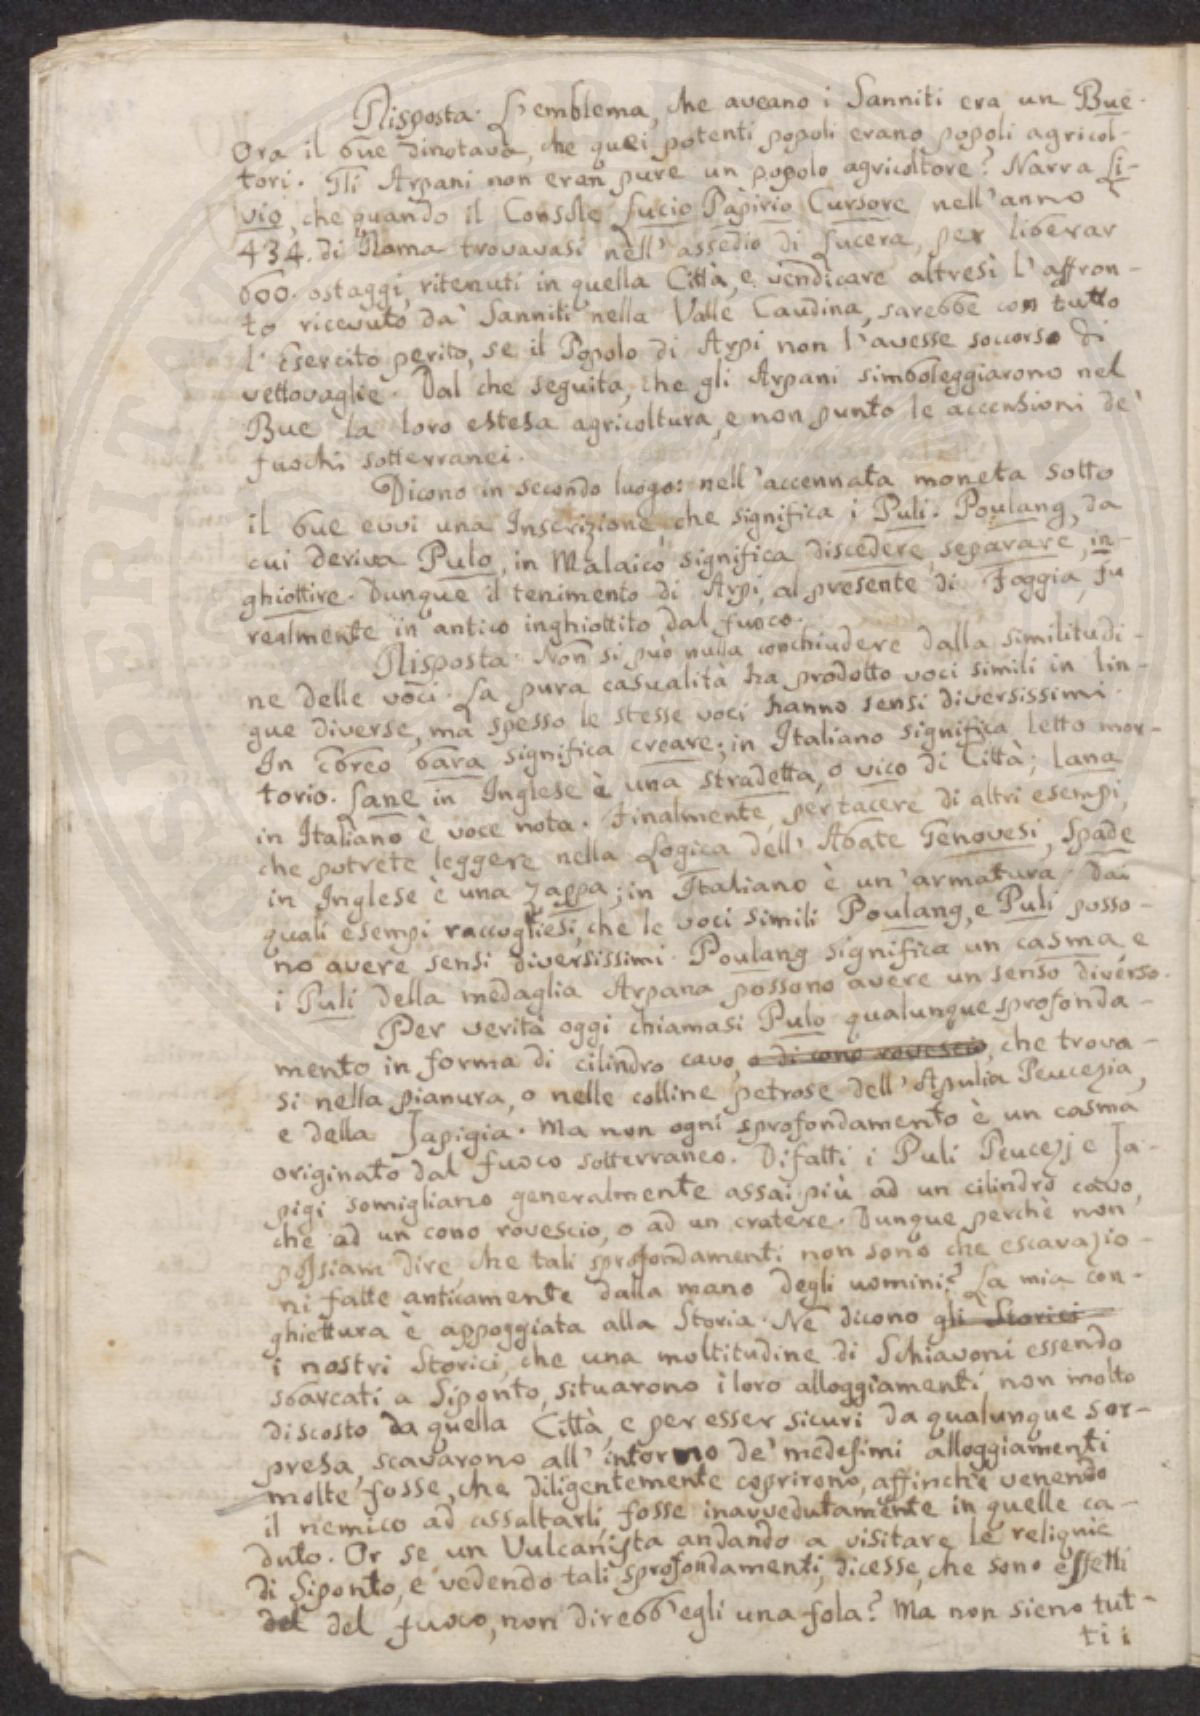 Risposta. L'emblema, che aveano i Sanniti era un Bue.
Ora il bue dinotava, che quei potenti popoli erano popoli agricol-
tori. Gli Arpani non eran pure un popolo agricoltore? Narra Li-
vio, che quando il Console Lucio Papirio Cursore nell'anno
434. di Roma trovavasi nell'assedio di Lucera, per liberar
600. ostaggi, ritenuti in quella Città, e vendicare altresì l'affron-
to ricevuto da' Sanniti nella Valle Caudina, sarebbe con tutto
l'Esercito perito, se il Popolo di Arpi non l'avesse soccorso di
vettovaglie. Dal che seguita, che gli Arpani simboleggiarono nel
Bue la loro estesa agricoltura, e non punto le accensioni de'
fuochi sotterranei.
Dicono in secondo luogo: nell'accennata moneta sotto
il bue evvi una Inscrizione, che significa i Puli. Poulang, da
cui deriva Pulo, in Malaico significa discedere, separare, in-
ghiottire. Dunque il tenimento di Arpi, al presente di Foggia, fu
realmente in antico inghiottito dal fuoco.
Risposta. Non si può nulla conchiudere dalla similitudi-
ne delle voci. La pura casualità ha prodotto voci simili in lin-
gue diverse, ma spesso le stesse voci hanno sensi diversissimi.
In Ebreo bara significa creare; in Italiano significa letto mor-
torio. Lane in Inglese è una stradetta, o vico di Città; lana
in Italiano è voce nota. Finalmente, per tacere di altri esempi,
che potrete leggere nella Logica dell'Abate Genovesi, Spade
in Inglese è una zappa; in Italiano è un'armatura. Dai
quali esempi raccogliesi, che le voci simili Poulang, e Puli posso-
no avere sensi diversissimi. Poulang significa un casma e
i Puli della medaglia Arpana possono avere un senso diverso.
Per verità oggi chiamasi Pulo qualunque sprofonda-
mento in forma di cilindro cavo, o di cono rovescio, che trova-
si nella pianura, o nelle colline petrose dell'Apulia Peucezia,
e della Japigia. Ma non ogni sprofondamento è un casma
originato dal fuoco sotterraneo. Difatti i Puli Peucezj e Ja-
pigi somigliano generalmente assai più ad un cilindro cavo,
che ad un cono rovescio, o ad un cratere. Dunque perchè non
possiam dire, che tali sprofondamenti non sono che escavazio-
ni fatte anticamente dalla mano degli uomini? La mia con-
ghiettura è appoggiata alla Storia. Ne dicono gli Storici
i nostri Storici, che una moltitudine di Schiavoni essendo
sbarcati a Siponto, situarono i loro alloggiamenti non molto
discosto da quella Città, e per esser sicuri da qualunque sor-
presa, scavarono all'intorno de' medesimi alloggiamenti
molte fosse, che diligentemente coprirono, affinchè venendo
il nemico ad assaltarli, fosse inavvedutamente in quelle ca-
duto. Or se un Vulcanista andando a visitare le reliquie
di Siponto, e vedendo tali sprofondamenti, dicesse, che sono effetti
del del fuoco, non direbb'egli una fola? Ma non sieno tut-
ti i